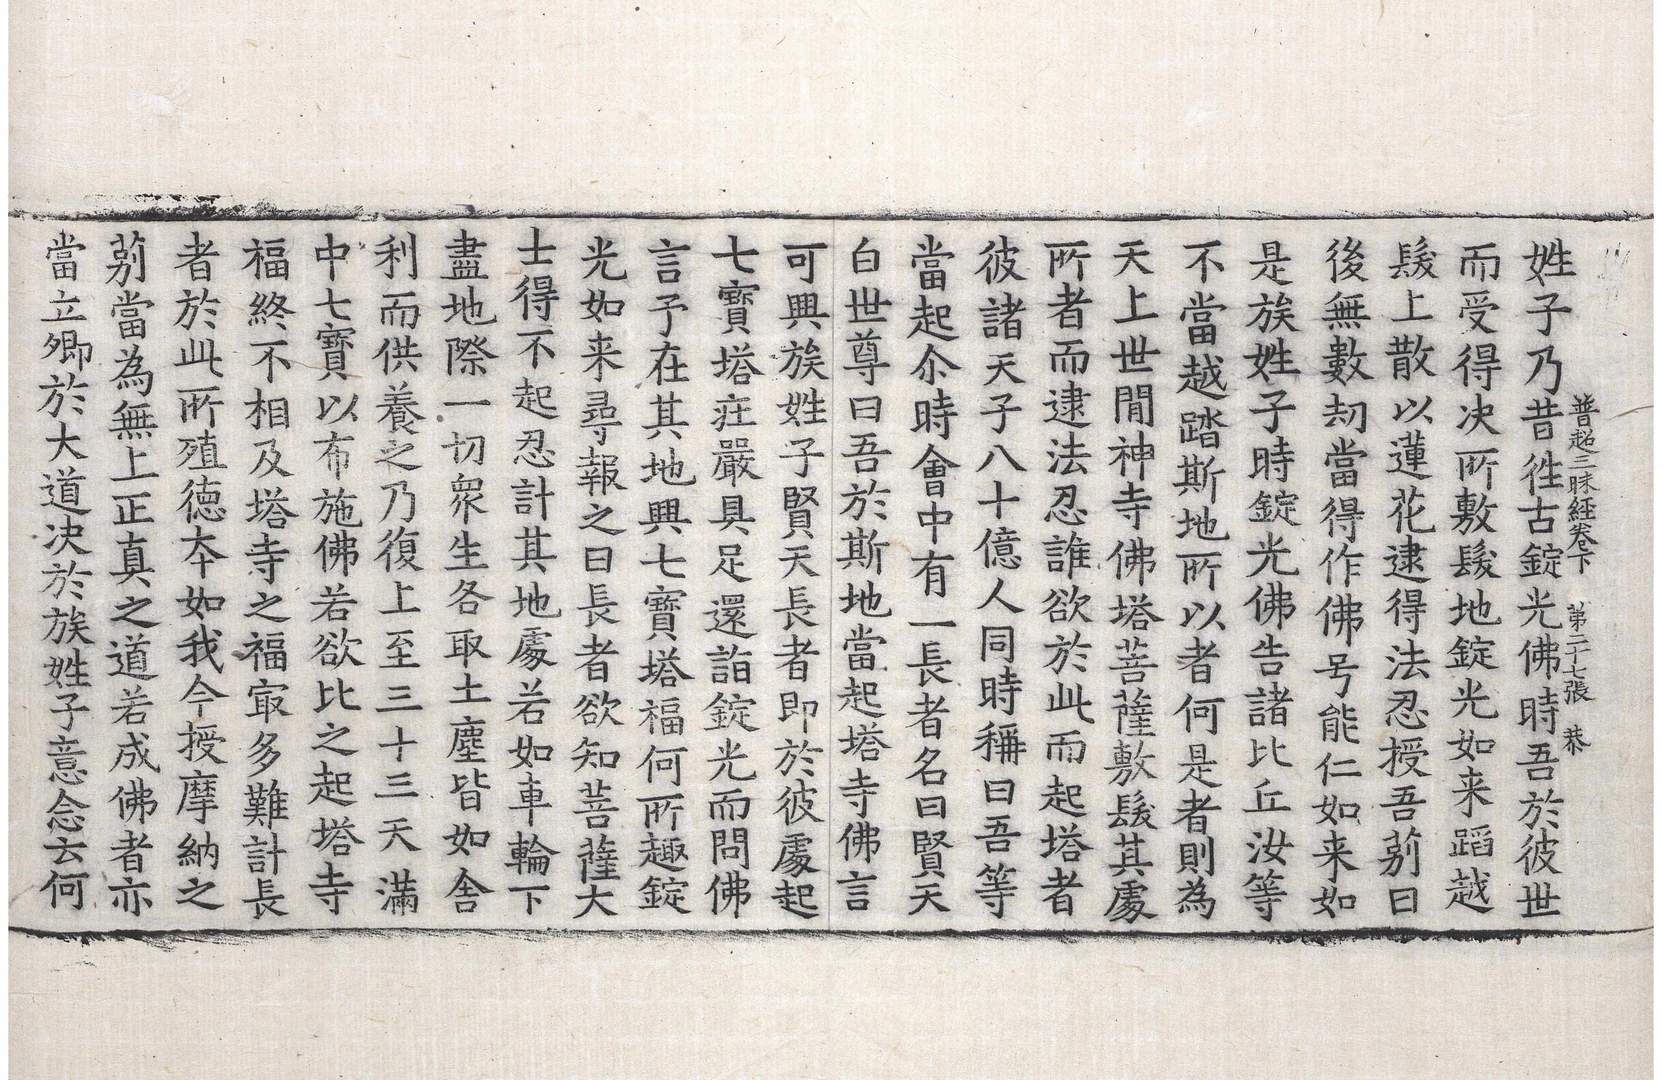 普超三昧經卷下 第二十七張 恭
姓子乃昔徃古錠光佛時吾於彼世
而受得决所敷髮地錠光如来蹈越
髮上散以蓮花逮得法忍授吾莂曰
後無數劫當得作佛号能仁如来如
是族姓子時錠光佛告諸比丘汝等
不當越踏斯地所以者何是者則為
天上世間神寺佛塔菩薩敷髮其處
所者而逮法忍誰欲於此而起塔者
彼諸天子八十億人同時稱曰吾等
當起尒時會中有一長者名曰賢天
白世尊曰吾於斯地當起塔寺佛言
可興族姓子賢天長者即於彼處起
七寶塔疘嚴具足還詣錠光而問佛
言予在其地興七寶塔福何所趣錠
光如来尋報之曰長者欲知菩薩大
士得不起忍計其地處若如車輪下
盡地際一切衆生各取土塵皆如舍
利而供養之乃復上至三十三天滿
中七寶以布施佛若欲比之起塔寺
福終不相及塔寺之福冣多難計長
者於此所殖德夲如我今授摩納之
莂當為無上正真之道若成佛者亦
當立卿於大道决於族姓子意念云何